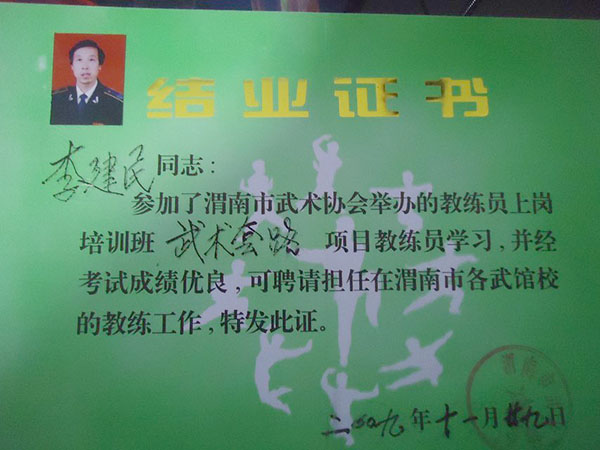 结业证书
李建民同志:
参加了渭南市武术协会举办的教练员上岗
培训班 武术套路 项目教练员学习,并经
考试成绩优良,可聘请担任在渭南市各武馆校
的教练工作,特发此证。
渭南市
二00九年十一月廿九日